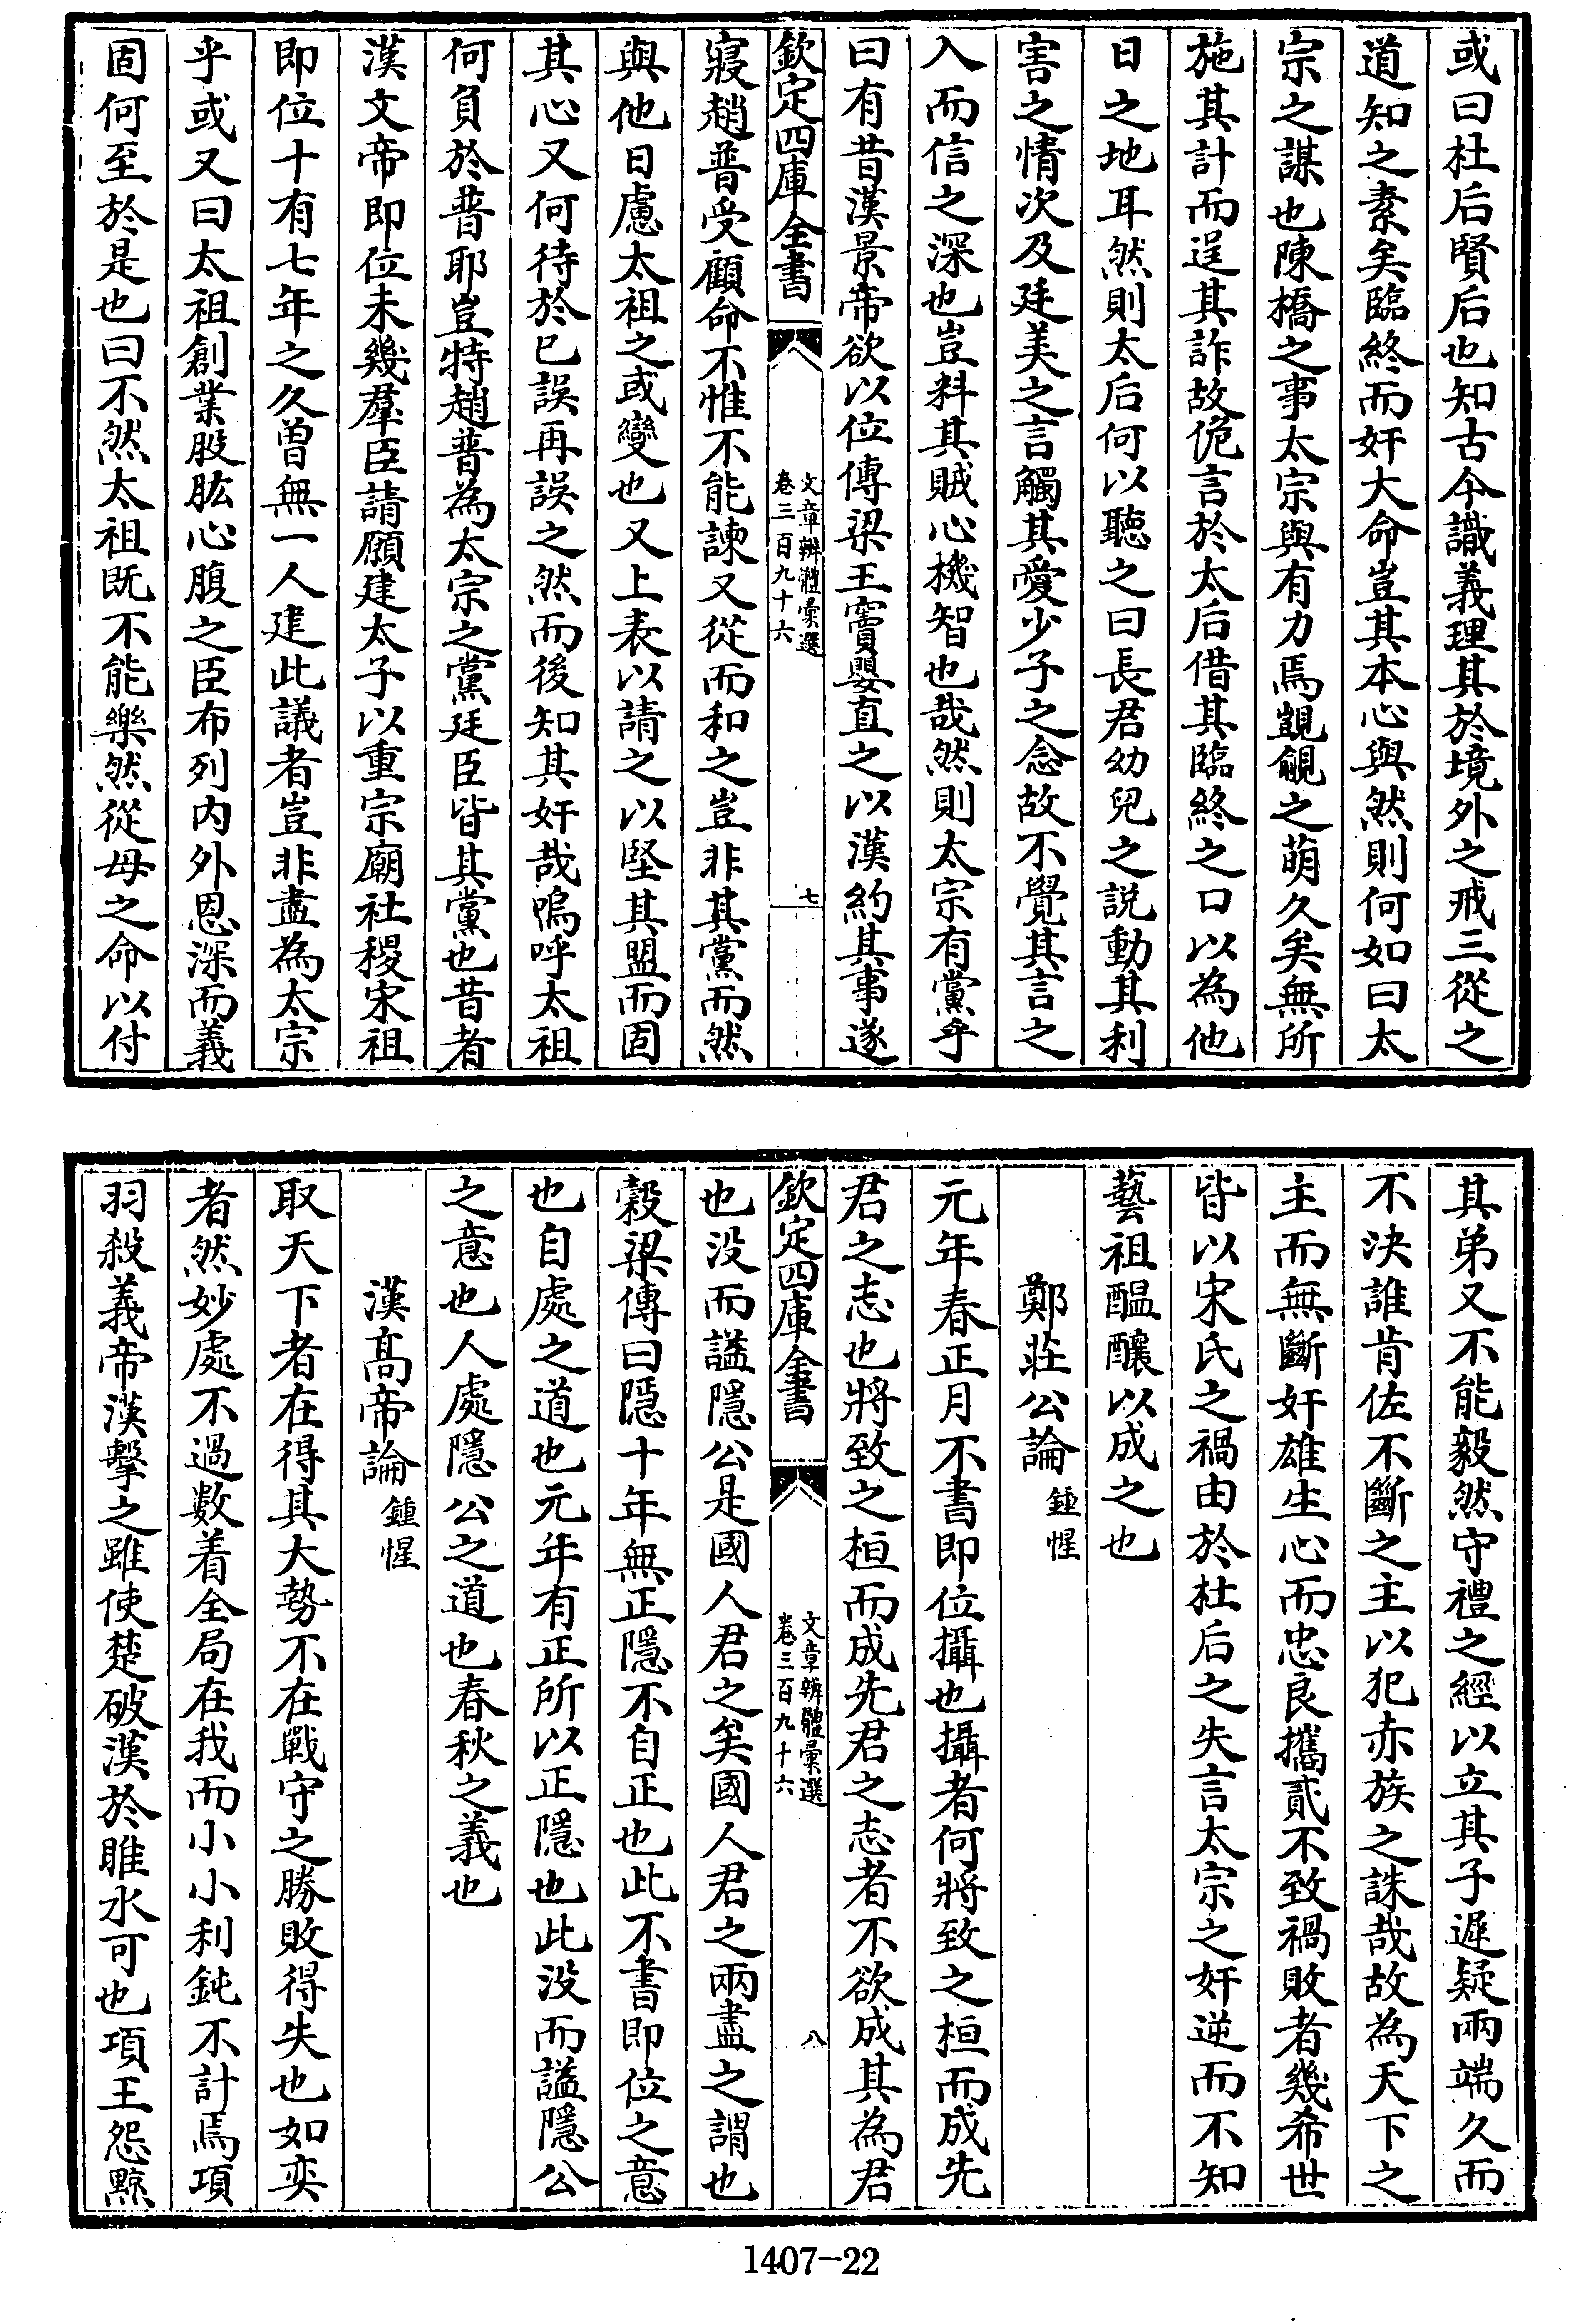 或曰杜后賢后也知古今識義理其於境外之戒三從之
道知之素矣臨終而奸大命豈其本心與然則何如曰太
宗之謀也陳橋之事太宗與有力焉覬覦之萌久矣無所
施其計而逞其詐故佹言於太后借其臨終之口以為他
日之地耳然則太后何以聽之曰長君幼兒之説動其利
害之情次及廷美之言觸其愛少子之念故不覺其言之
入而信之深也豈料其賊心機智也哉然則太宗有黨乎
曰有昔漢景帝欲以位傳梁王竇嬰直之以漢約其事遂
欽定四庫全書
文章辨體彙選
卷三百九十六
七
寢趙普受顧命不惟不能諫又從而和之豈非其黨而然
與他日慮太祖之或變也又上表以請之以堅其盟而固
其心又何待於已誤再誤之然而後知其奸哉嗚呼太祖
何負於普耶豈特趙普為太宗之黨廷臣皆其黨也昔者
漢文帝即位未幾羣臣請願建太子以重宗廟社稷宋祖
即位十有七年之久曾無一人建此議者豈非盡為太宗
乎或又曰太祖創業股肱心腹之臣布列内外恩深而義
固何至於是也曰不然太祖既不能樂然從母之命以付
其弟又不能毅然守禮之經以立其子遲疑兩端久而
不決誰肯佐不斷之主以犯赤族之誅哉故為天下之
主而無斷奸雄生心而忠良攜貳不致禍敗者幾希世
皆以宋氏之禍由於杜后之失言太宗之奸逆而不知
藝祖醖釀以成之也
鄭莊公論鍾惺
元年春正月不書即位攝也攝者何將致之桓而成先
君之志也將致之桓而成先君之志者不欲成其為君
欽定四庫全書
文章辨體彙選
卷三百九十六
八
也沒而謚隱公是國人君之矣國人君之兩盡之謂也
穀梁傳曰隱十年無正隱不自正也此不書即位之意
也自處之道也元年有正所以正隱也此沒而謚隱公
之意也人處隱公之道也春秋之義也
漢高帝論鍾惺
取天下者在得其大勢不在戰守之勝敗得失也如奕
者然妙處不過數着全局在我而小小利鈍不計焉項
羽殺義帝漢擊之雖使楚破漢於睢水可也項王怨黥
1407-22